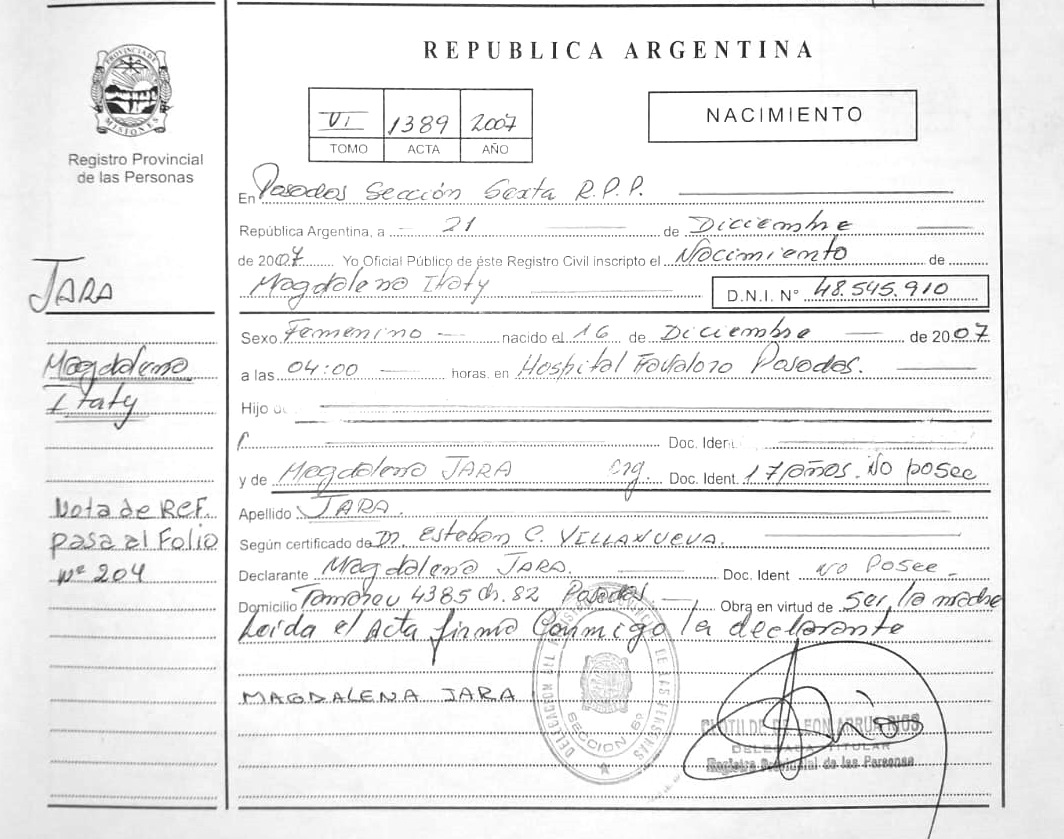 REPUBLICA ARGENTINA
PROVINCIA DE MISIONES
Registro Provincial
de las Personas
VI 1389 2007
TOMO ACTA AÑO
NACIMIENTO
En Posadas Sección Sexta R.P.P.
República Argentina, a 21 de Diciembre
de 2007 Yo Oficial Público de éste Registro Civil inscripto el Nacimiento de
Magdalena Itaty D.N.I. N° 48.545.910
Sexo Femenino nacido el 16 de Diciembre de 2007
a las 04:00 horas. en Hospital Favaloro Posadas.
Hijo
Doc. Ident.
y de Magdalena JARA arg. Doc. Ident. 17 años. No posee
Apellido JARA.
Según certificado de Dr. Esteban C. VILLANUEVA.
Declarante Magdalena JARA. Doc. Ident No Posee.
Domicilio 4385 ch. 82 Posadas Obra en virtud de Ser la madre
Leida el Acta firma Conmigo la declarante
MAGDALENA JARA
JARA
Magdalena
Itaty
Nota de REF.
pasa al Folio
Nº 204
SECCION 6º
DELEGADA TITULAR
Registro Provincial de las Personas